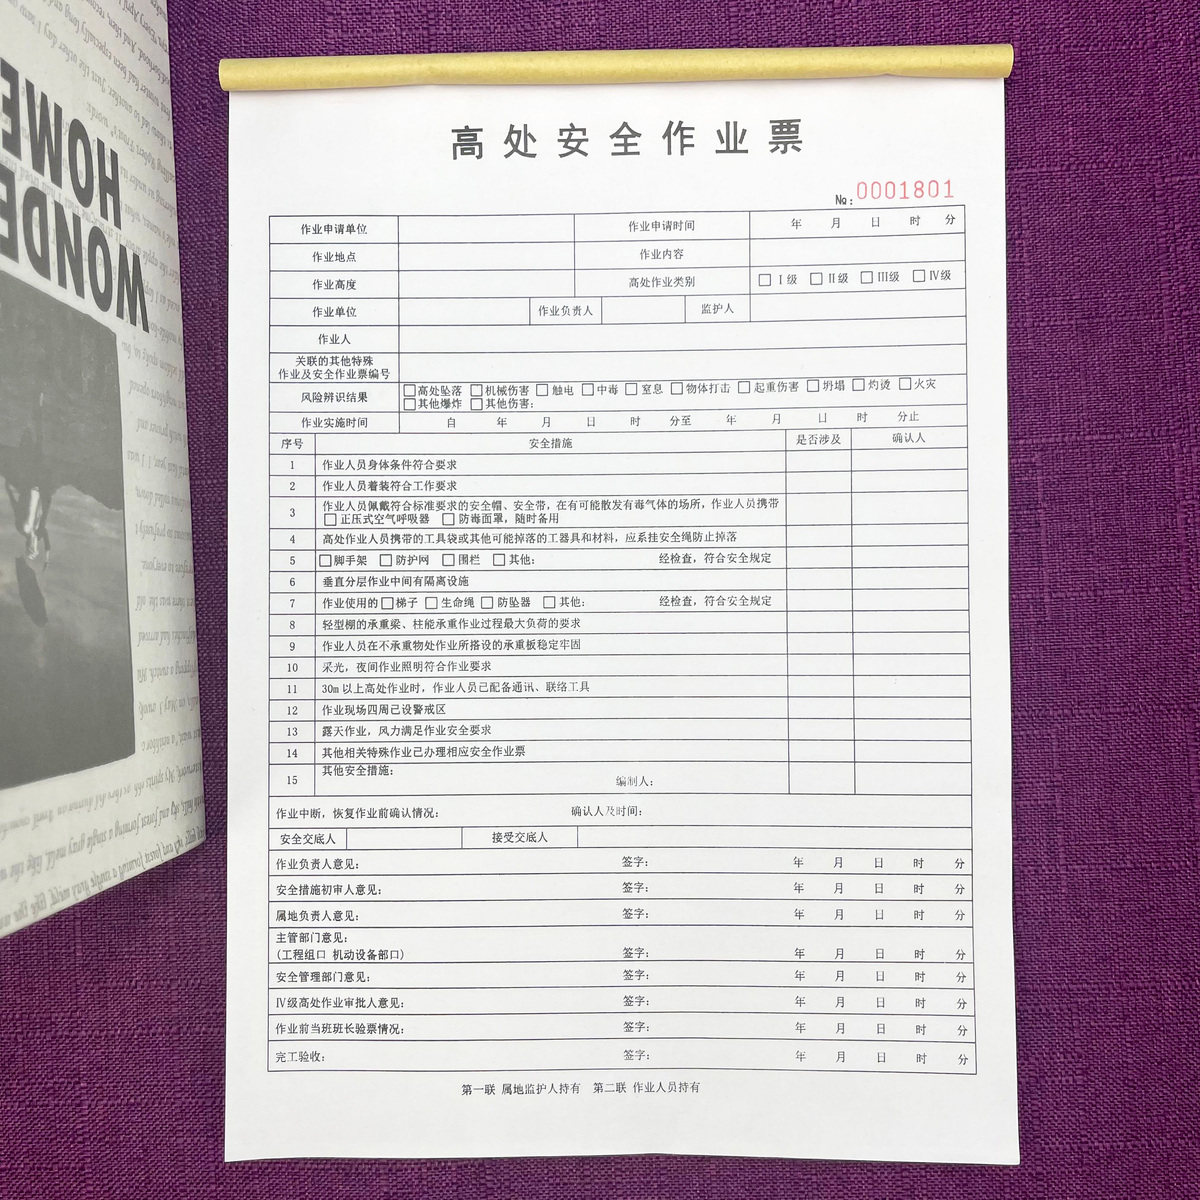 HOME
WONDE
高处安全作业票
№: 0001801
作业申请单位 作业申请时间 年 月 日 时 分
作业地点 作业内容
作业高度 高处作业类别 □ I 级 □ II 级 □ III级 □ IV级
作业单位 作业负责人 监护人
作业人
关联的其他特殊
作业及安全作业票编号
风险辨识结果 □高处坠落 □机械伤害 □触电 □中毒 □窒息 □物体打击 □起重伤害 □坍塌 □灼烫 □火灾
□其他爆炸 □其他伤害:
作业实施时间 自 年 月 日 时 分至 年 月 日 时 分止
序号 安全措施 是否涉及 确认人
1 作业人员身体条件符合要求
2 作业人员着装符合工作要求
3 作业人员佩戴符合标准要求的安全帽、安全带，在有可能散发有毒气体的场所，作业人员携带
□ 正压式空气呼吸器 □ 防毒面罩，随时备用
4 高处作业人员携带的工具袋或其他可能掉落的工器具和材料，应系挂安全绳防止掉落
5 □脚手架 □防护网 □围栏 □其他: 经检查，符合安全规定
6 垂直分层作业中间有隔离设施
7 作业使用的□梯子 □生命绳 □防坠器 □其他: 经检查，符合安全规定
8 轻型棚的承重梁、柱能承重作业过程最大负荷的要求
9 作业人员在不承重物处作业所搭设的承重板稳定牢固
10 采光，夜间作业照明符合作业要求
11 30m 以上高处作业时，作业人员已配备通讯、联络工具
12 作业现场四周已设警戒区
13 露天作业，风力满足作业安全要求
14 其他相关特殊作业已办理相应安全作业票
15 其他安全措施: 编制人:
作业中断，恢复作业前确认情况: 确认人及时间:
安全交底人 接受交底人
作业负责人意见: 签字: 年 月 日 时 分
安全措施初审人意见: 签字: 年 月 日 时 分
属地负责人意见: 签字: 年 月 日 时 分
主管部门意见:
(工程组口 机动设备部口) 签字: 年 月 日 时 分
安全管理部门意见: 签字: 年 月 日 时 分
IV级高处作业审批人意见: 签字: 年 月 日 时 分
作业前当班班长验票情况: 签字: 年 月 日 时 分
完工验收: 签字: 年 月 日 时 分
第一联 属地监护人持有 第二联 作业人员持有